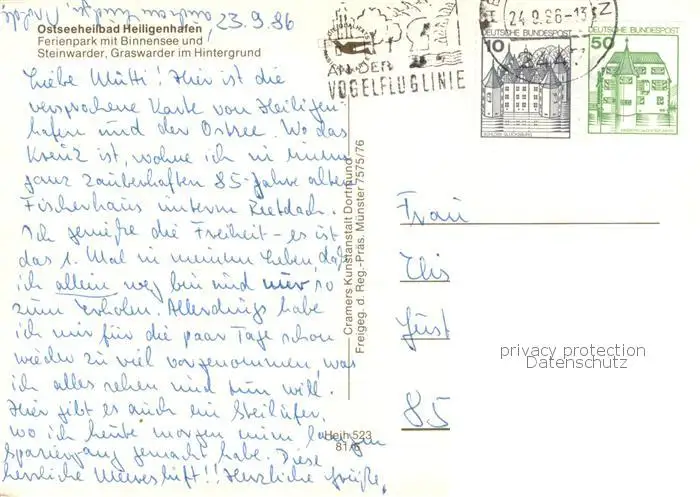 23.9.86
Ostseeheilbad Heiligenhafen
Ferienpark mit Binnensee und
Steinwarder, Graswarder im Hintergrund
Liebe Mutti! Hier ist die
versprochene Karte von Heiligen-
hafen und der Ostsee. Wo das
Kreuz ist, wohne ich in einem
ganz zauberhaften 85-Jahre alten
Fischerhaus unterm Rietdach.
Ich genieße die Freiheit – es ist
das 1. Mal in meinem Leben, daß
ich allein weg bin und nur so
zum Erholen. Allerdings habe
ich mir für die paar Tage schon
wieder zu viel vorgenommen, was
ich alles sehen und tun will.
Hier gibt es auch ein Steilufer,
wo ich heute morgen einen langen
Spaziergang gemacht habe. Diese
herrliche Meeresluft!! Herzliche Grüße,
AN DER
VOGELFLUGLINIE
24.9.86-13
Z
10 DEUTSCHE BUNDESPOST
SCHLOSS GLÜCKSBURG
50 DEUTSCHE BUNDESPOST
Cramers Kunstanstalt Dortmund
Freigeg. d. Reg.-Präs. Münster 7575/76
Heih 523
Frau
85
privacy protection
Datenschutz